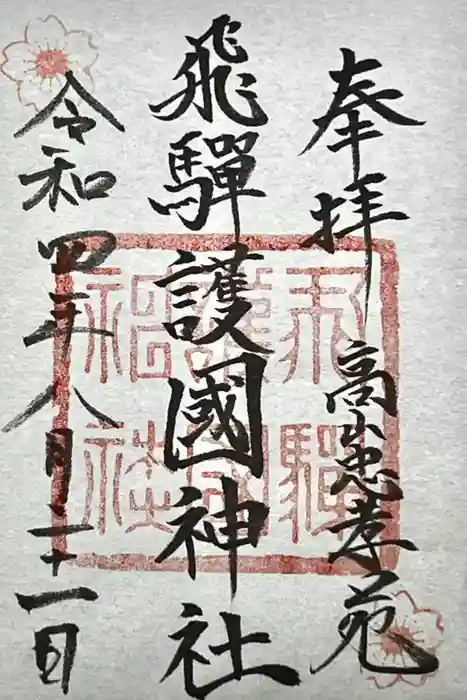 奉拝
高山忠孝苑
飛驒護國神社
令和四年八月二十一日
飛驒護國神社